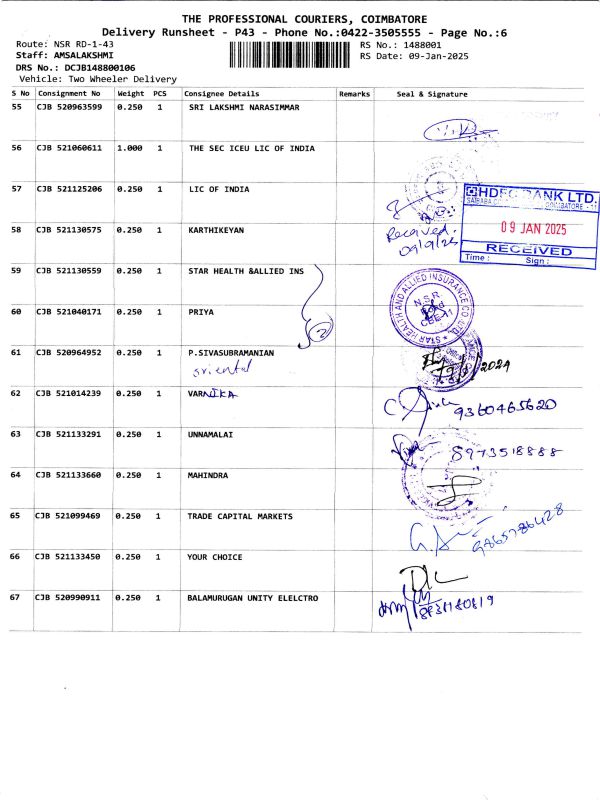 THE PROFESSIONAL COURIERS, COIMBATORE
Delivery Runsheet - P43 - Phone No.:0422-3505555 - Page No.:6
Route: NSR RD-1-43
RS No.: 1488001
Staff: AMSALAKSHMI
RS Date: 09-Jan-2025
DRS No.: DCJB148800106
Vehicle: Two Wheeler Delivery
S No Consignment No Weight PCS Consignee Details Remarks Seal & Signature
55 CJB 520963599 0.250 1 SRI LAKSHMI NARASIMMAR
56 CJB 521060611 1.000 1 THE SEC ICEU LIC OF INDIA
57 CJB 521125206 0.250 1 LIC OF INDIA
HDFC BANK LTD.
09 JAN 2025
RECEIVED
Time: Sign:
58 CJB 521130575 0.250 1 KARTHIKEYAN
Received.
59 CJB 521130559 0.250 1 STAR HEALTH &ALLIED INS
STAR HEALTH AND ALLIED INSURANCE CO. LTD.
N.S.R. Road CBE-11
60 CJB 521040171 0.250 1 PRIYA
2
61 CJB 520964952 0.250 1 P.SIVASUBRAMANIAN
oriental
62 CJB 521014239 0.250 1 VARNIKA
9360465620
63 CJB 521133291 0.250 1 UNNAMALAI
8973518888
64 CJB 521133660 0.250 1 MAHINDRA
65 CJB 521099469 0.250 1 TRADE CAPITAL MARKETS
9865786428
66 CJB 521133450 0.250 1 YOUR CHOICE
67 CJB 520990911 0.250 1 BALAMURUGAN UNITY ELELCTRO